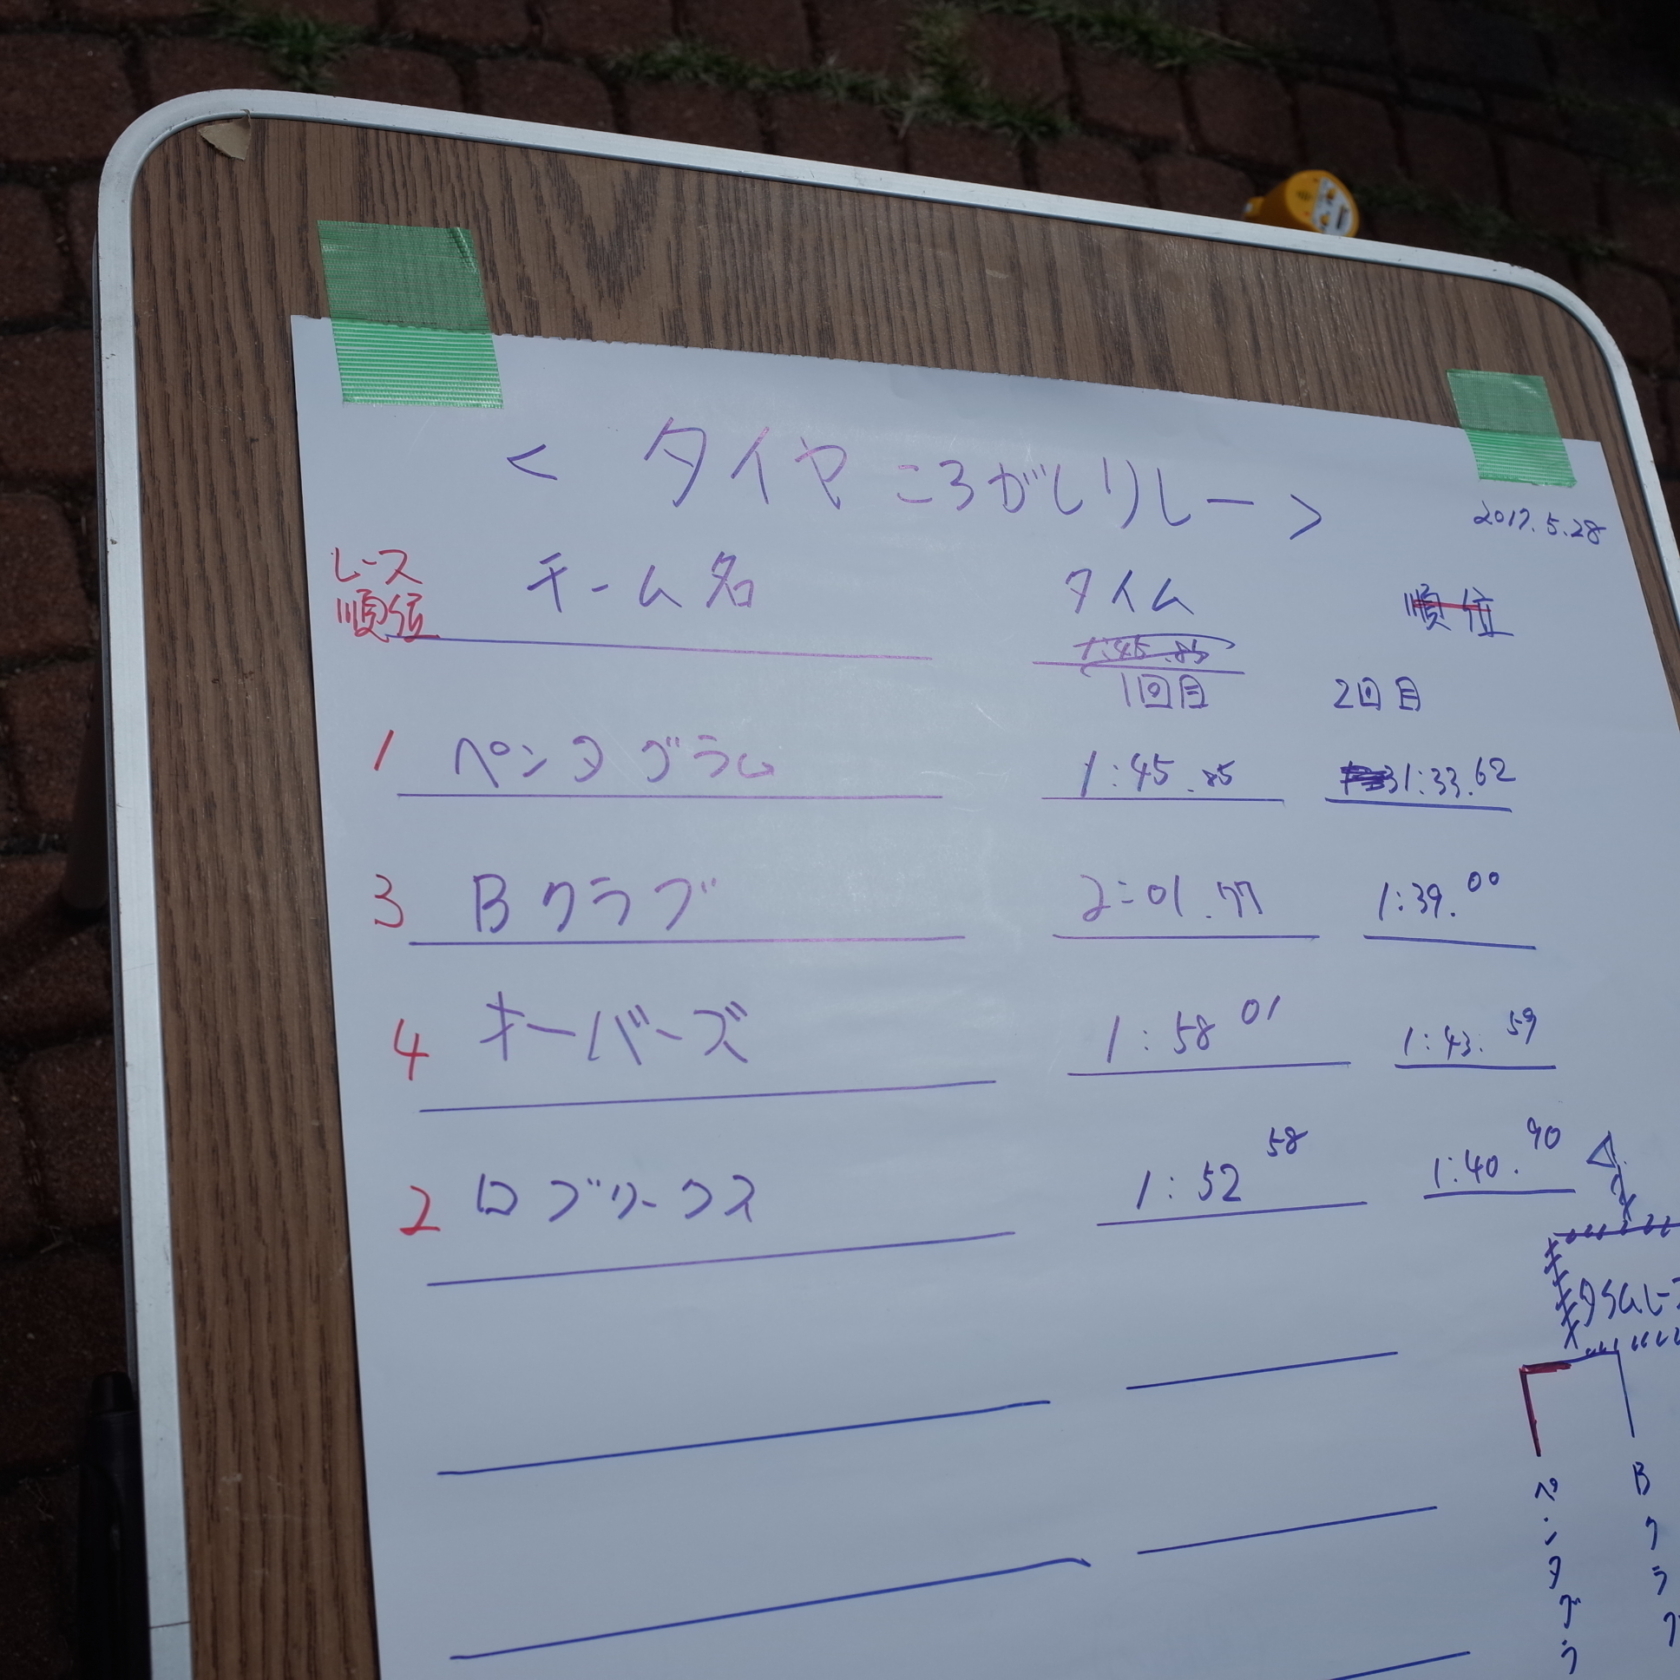 ＜ タイヤころがしリレー ＞
2017.5.28
レース順位 チーム名 タイム 順位
1:45.85
1回目 2回目
1 ペンタグラム 1:45.85 1:33.62
3 Bクラブ 2:01.77 1:39.00
4 キーバーズ 1:58 01 1:43.59
2 ロブワークス 1:52 58 1:40.90
タイムレー
ペンタグラ
Bクラブ